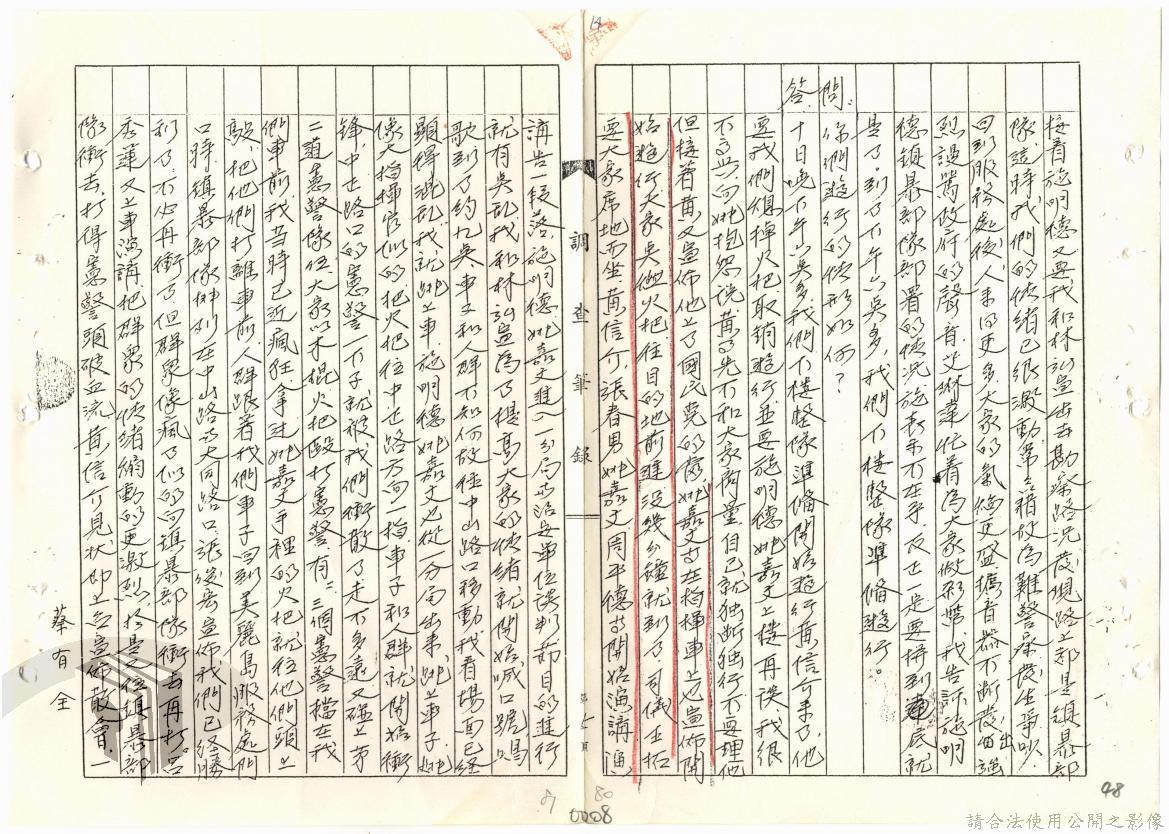 接着施明德又要我和林弘宣出去勘察路況發現路上都是鎮暴部
隊，這時我們的情緒已很激動，常々藉故為難警察發生爭吵
回到服務處後，人來的更多，大家的氣焰更盛，擴音器不斷發出強
烈謾罵政府的聲音，艾琳達忙着為大家做彩帶，我告訴施明
德鎮暴部隊部署的情況，施表示不在乎，反正是要拼到底就
是了，到了下午六点多，我們下樓整隊準備遊行。
問：你們遊行的情形如何？
答：十日晚下午六点多，我們下樓整隊準備開始遊行，黃信介來了，他
要我們熄掉火把取銷遊行，並要施明德、姚嘉文上樓再談，我很
不高興向姚抱怨說黃事先不和大家商量自己就独断独行不要理他
但接着黃又宣佈他上了國民党的當，姚嘉文古在指揮車上也宣佈開
始遊行，大家点燃火把往目的地前進，沒幾分鐘就到了，司儀
要大家席地而坐，黃信介、張春男、姚嘉文、周平德等開始演講，演
調查筆錄
講告一段落，施明德、姚嘉文進入一分局与治安單位談判，節目的進行
就有点亂，我和林弘宣為了提高大家的情緒就開始喊口號唱
歌，到了約九点車子和人群不知何故往中山路口移動，我看場面已經
顯得混亂，我就跳上車，施明德、姚嘉文也從一分局出來跳上車子，姚
像大指揮官似的把火把往中正路方向一指，車子和人群就開始衝
鋒，中正路口的憲警一下子就被我們衝散了，走不多遠又碰上第
二道憲警隊伍，大家以木棍火把毆打憲警，有二、三個憲警擋在我
們車前，我當時已近瘋狂，拿过姚嘉文手裡的火把就往他們頭上
敲，把他們打離車前，人群跟著我們車子回到美麗島服務處門
口時，鎮暴部隊排列在中山路与大同路口，張俊宏宣佈我們已經勝
利了，不必再衝了，但群眾像瘋了似的向鎮暴部隊衝去再打。呂
秀蓮又上車演講，把群眾的情緒煽動的更激烈，於是又往鎮暴部
隊衝去，打得憲警頭破血流，黃信介見狀即上台宣佈散會，一
蔡有全
48
80
81
0008
請合法使用公開之影像